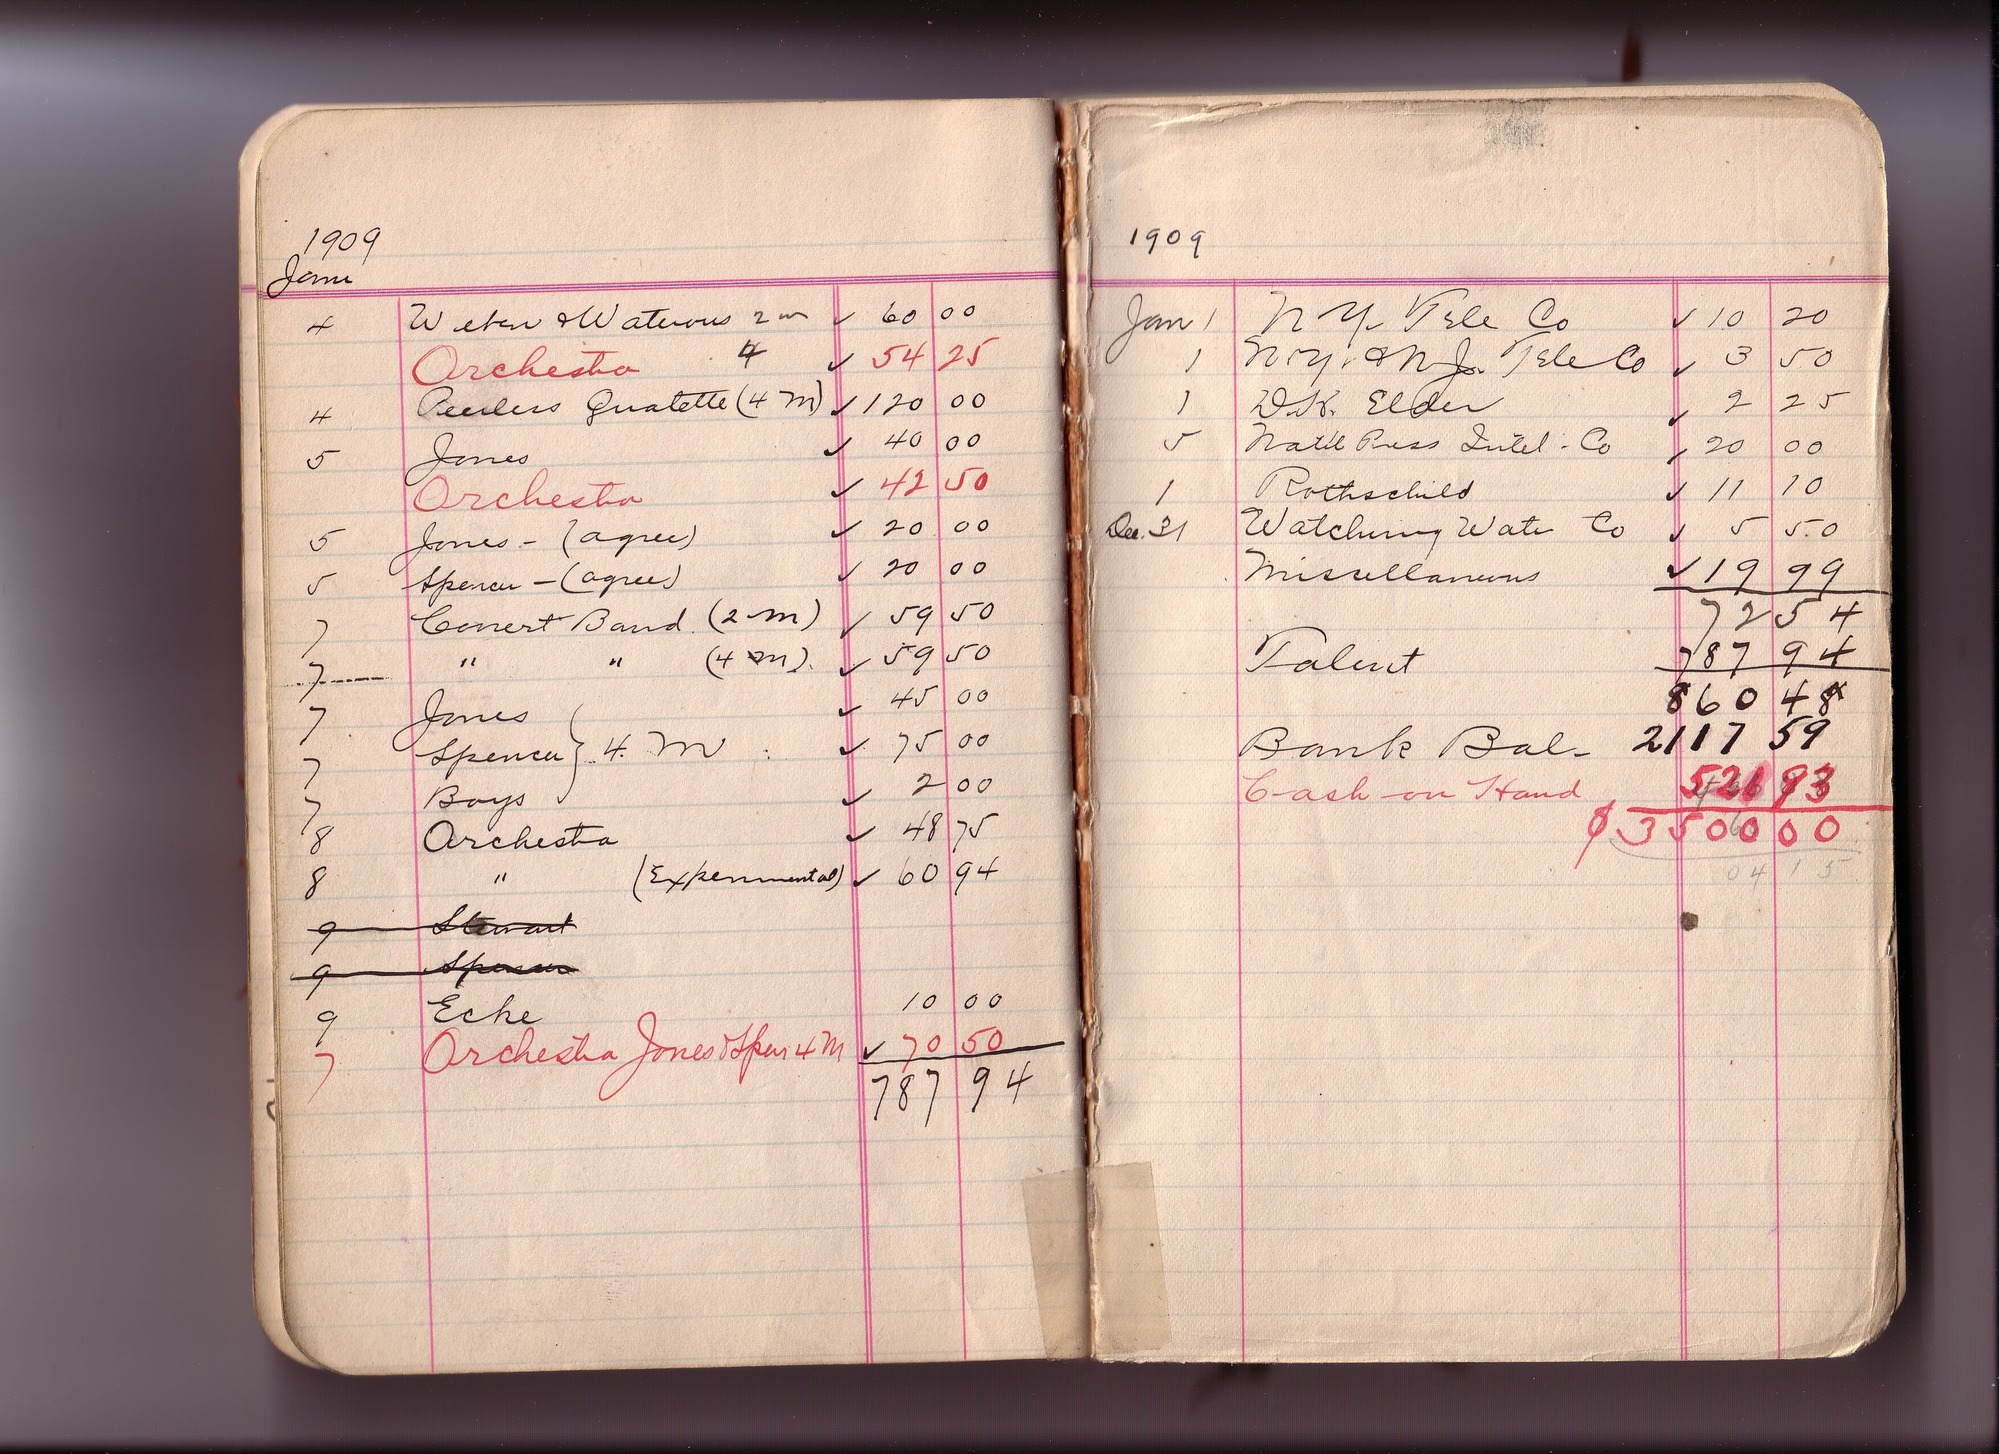 1909
Jany
4 Weber & Waterous 2 m ✓ 60 00
Orchestra 4 ✓ 54 25
4 Peerless Quatette (4 M) ✓ 120 00
5 Jones ✓ 40 00
Orchestra ✓ 42 50
5 Jones - (agree) ✓ 20 00
5 Spencer - (agree) ✓ 20 00
7 Concert Band (2 M) ✓ 59 50
7 " " (4 M) ✓ 59 50
7 Jones ✓ 45 00
7 Spencer } 4 M ✓ 75 00
7 Boys ✓ 2 00
8 Orchestra ✓ 48 75
8 " (Experimental) ✓ 60 94
9 Stewart
9 Spencer
9 Ecke 10 00
7 Orchestra Jones & Spen 4 M ✓ 70 50
787 94
1909
Jan 1 N Y. Tele Co ✓ 10 20
1 N.Y. & N.J. Tele Co ✓ 3 50
1 D.K. Elder ✓ 2 25
5 Natl Press Intel. Co ✓ 20 00
1 Rothschild ✓ 11 10
Dec. 31 Watchung Water Co ✓ 5 50
Miscellaneous ✓ 19 99
72 54
Talent 787 94
860 48
Bank Bal- 2117 59
Cash on Hand 521 93
$ 3500 00
04 15